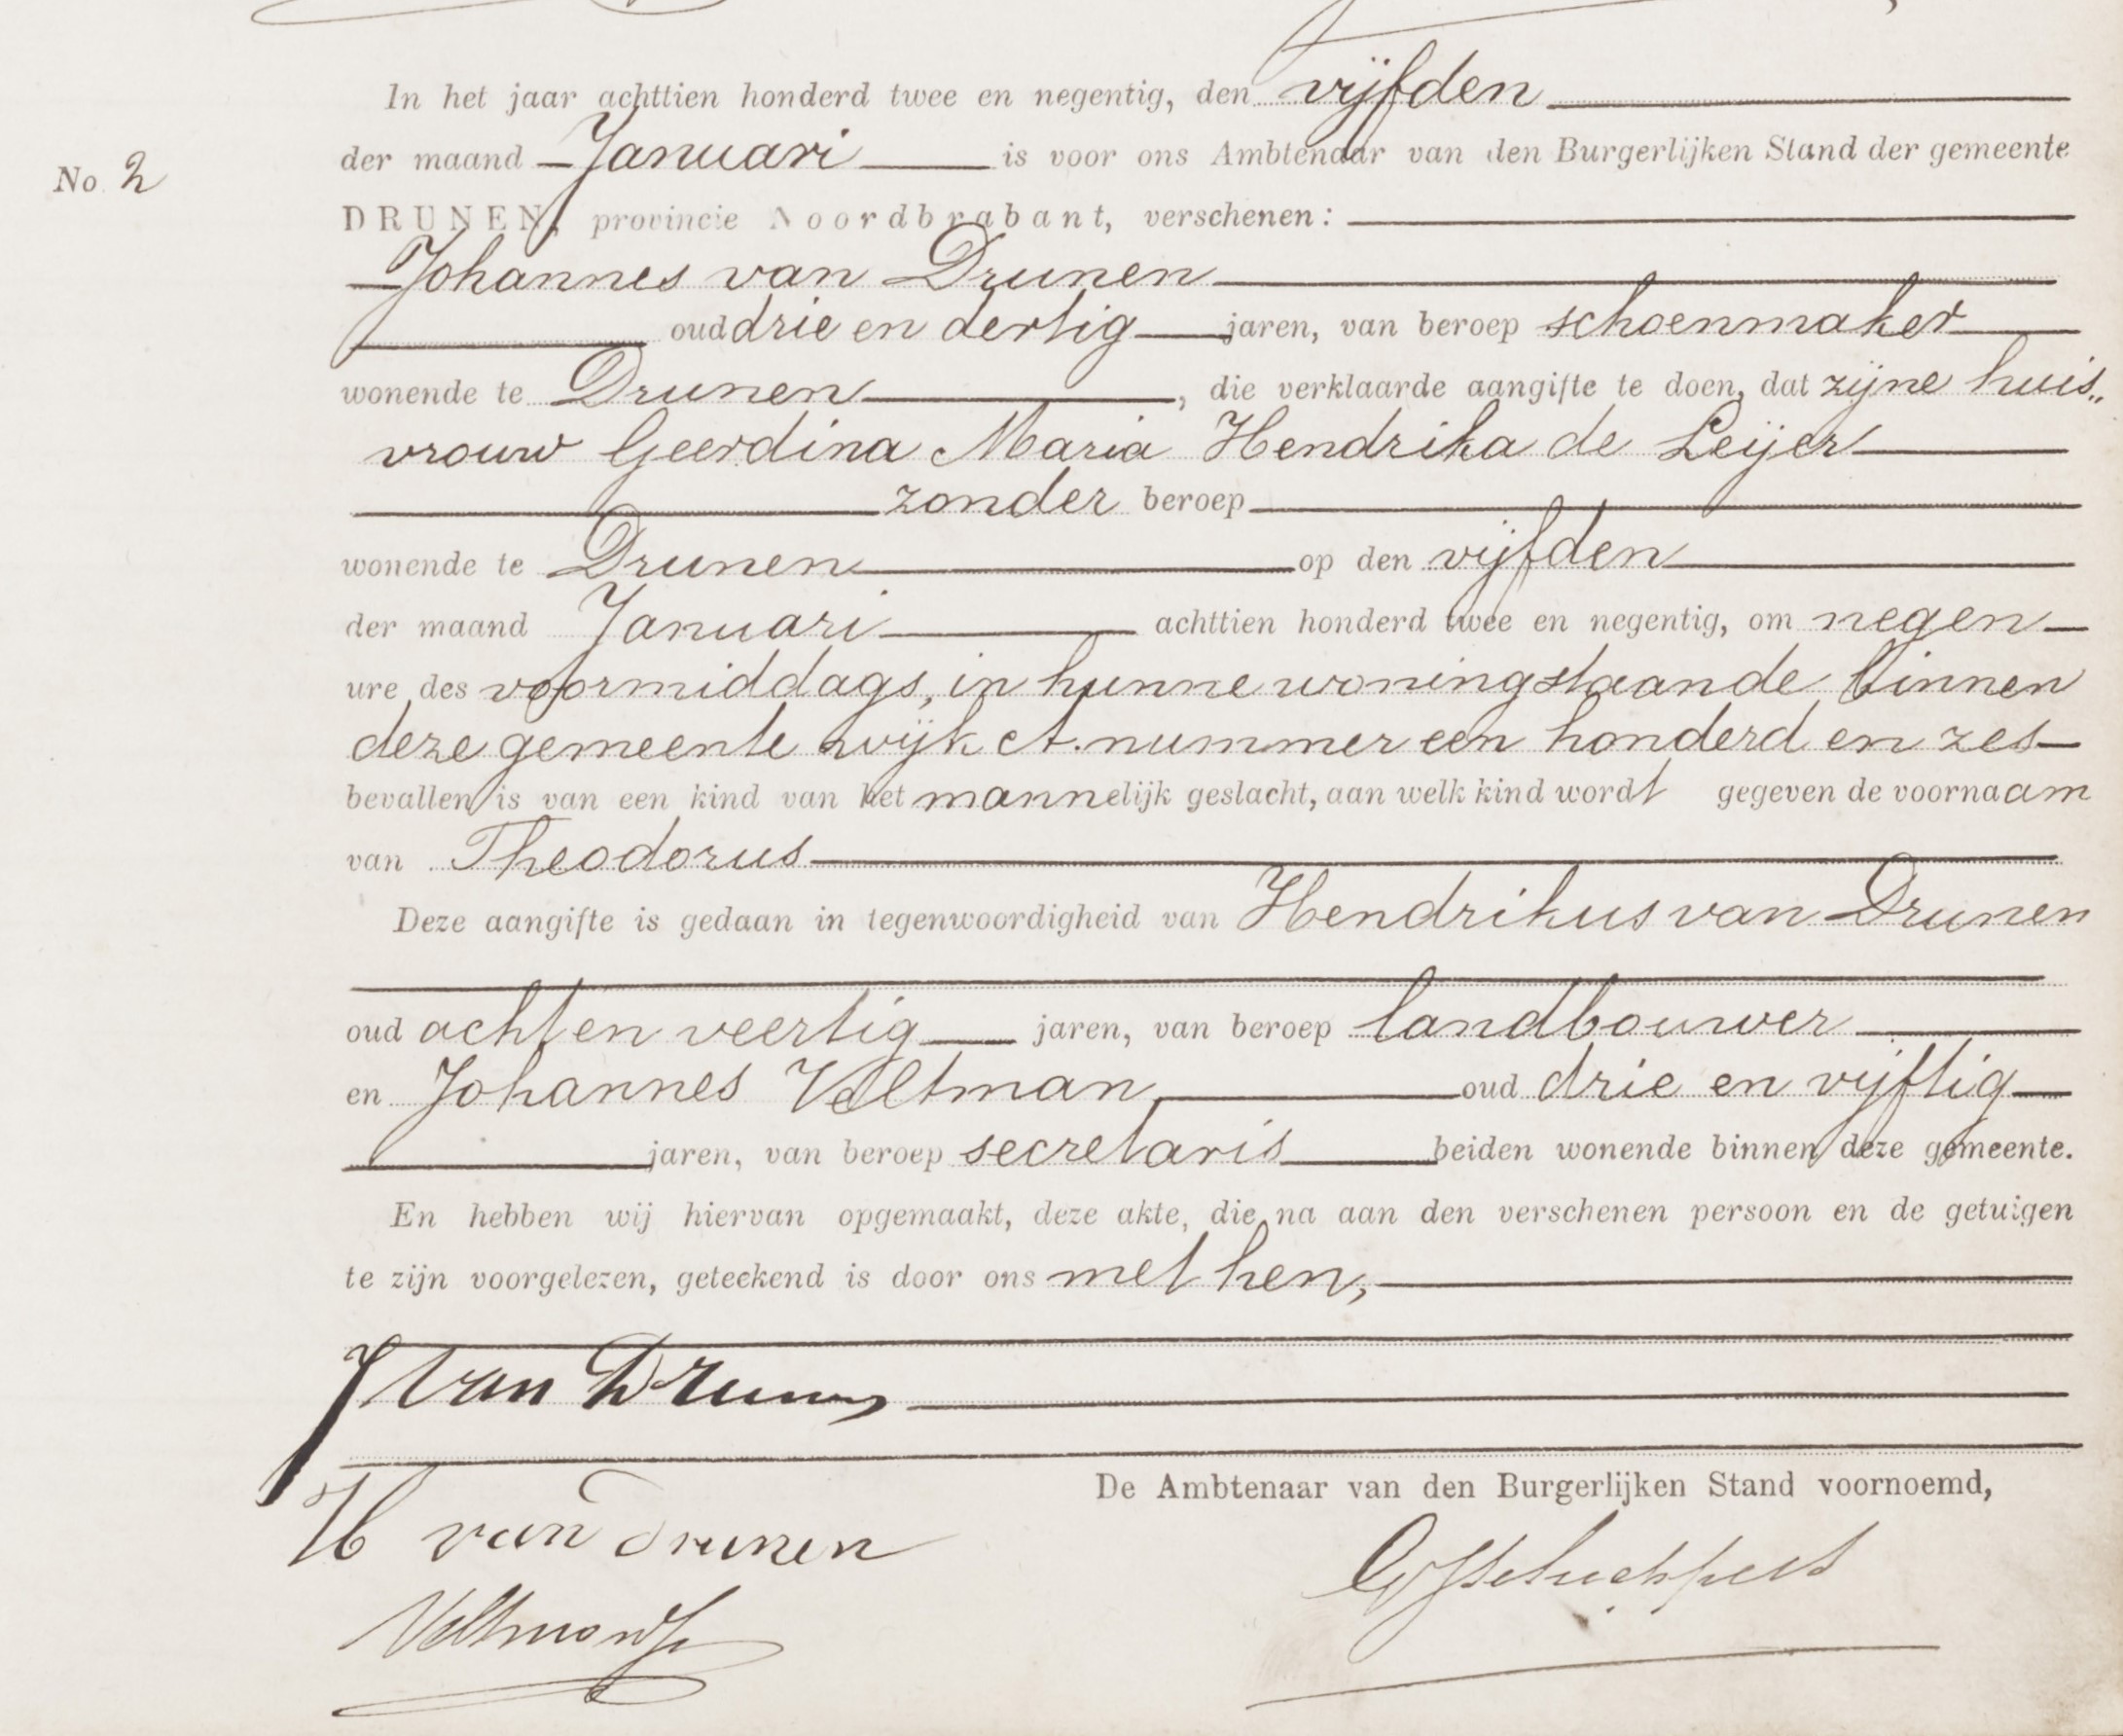 In het jaar achttien honderd twee en negentig, den vijfden
No 2
der maand Januari is voor ons Ambtenaar van den Burgerlijken Stand der gemeente
DRUNEN, provincie Noordbrabant, verschenen:
Johannes van Drunen
oud drie en dertig jaren, van beroep schoenmaker
wonende te Drunen, die verklaarde aangifte te doen, dat zijne huis„
vrouw Geerdina Maria Hendrika de Leijer
zonder beroep
wonende te Drunen op den vijfden
der maand Januari achttien honderd twee en negentig, om negen
ure des voormiddags, in hunne woning staande binnen
deze gemeente wijk A. nummer een honderd en zes
bevallen is van een kind van het mannelijk geslacht, aan welk kind wordt gegeven de voornaam
van Theodorus
Deze aangifte is gedaan in tegenwoordigheid van Hendrikus van Drunen
oud acht en veertig jaren, van beroep landbouwer
en Johannes Veltman, oud drie en vijftig
jaren, van beroep secretaris beiden wonende binnen deze gemeente.
En hebben wij hiervan opgemaakt, deze akte, die na aan den verschenen persoon en de getuigen
te zijn voorgelezen, geteekend is door ons met hen,
J van Drunen
De Ambtenaar van den Burgerlijken Stand voornoemd,
H van Drunen